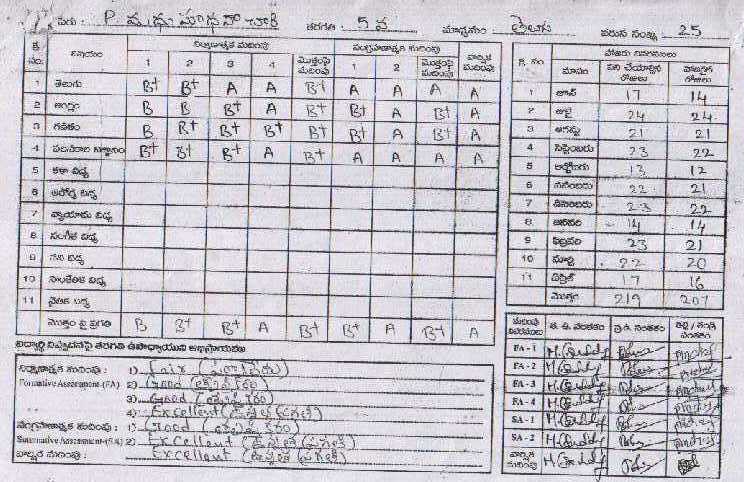 పేరు : P. మధుసూదనాచారి తరగతి : 5 వ మాధ్యమం : తెలుగు వరుస సంఖ్య : 25
క్ర. సం. విషయం నిర్మాణాత్మక మదింపు సంగ్రహణాత్మక మదింపు వార్షిక మదింపు
1 2 3 4 మొత్తంపై మదింపు 1 2 మొత్తంపై మదింపు
1 తెలుగు B+ B+ A A B+ A A A A
2 ఆంగ్లం B B B+ A B+ B+ A B+ A
3 గణితం B B+ B+ B+ B+ B+ A B+ A
4 పరిసరాల విజ్ఞానం B+ B+ B+ A B+ A A A A
5 కళా విద్య
6 ఆరోగ్య విద్య
7 వ్యాయామ విద్య
8 సంగీత విద్య
9 పని విద్య
10 సాంకేతిక విద్య
11 నైతిక విద్య
మొత్తం పై ప్రగతి B B+ B+ A B+ B+ A B+ A
క్ర. సం. హాజరు వివరములు
మాసం పని చేయాల్సిన రోజులు హాజరైన రోజులు
1 జూన్ 17 14
2 జులై 24 24
3 ఆగస్టు 21 21
4 సెప్టెంబరు 23 22
5 అక్టోబరు 13 12
6 నవంబరు 22 21
7 డిసెంబరు 23 22
8 జనవరి 14 14
9 ఫిబ్రవరి 23 21
10 మార్చి 22 20
11 ఏప్రిల్ 17 16
మొత్తం 219 207
విద్యార్థి నిష్పాదనపై తరగతి ఉపాధ్యాయుని అభిప్రాయం
నిర్మాణాత్మక మదింపు : 1) Fair
Formative Assessment-(FA) 2) Good
3) Good
4) Excellent
సంగ్రహణాత్మక మదింపు : 1) Good
Summative Assessment-(SA) 2) Excellent
వార్షిక మదింపు : Excellent
మదింపు వివరములు త. ఉ. సంతకం ప్ర.ఉ. సంతకం తల్లి / తండ్రి సంతకం
FA - 1
FA - 2
FA - 3
FA - 4
SA - 1
SA - 2
వార్షిక మదింపు